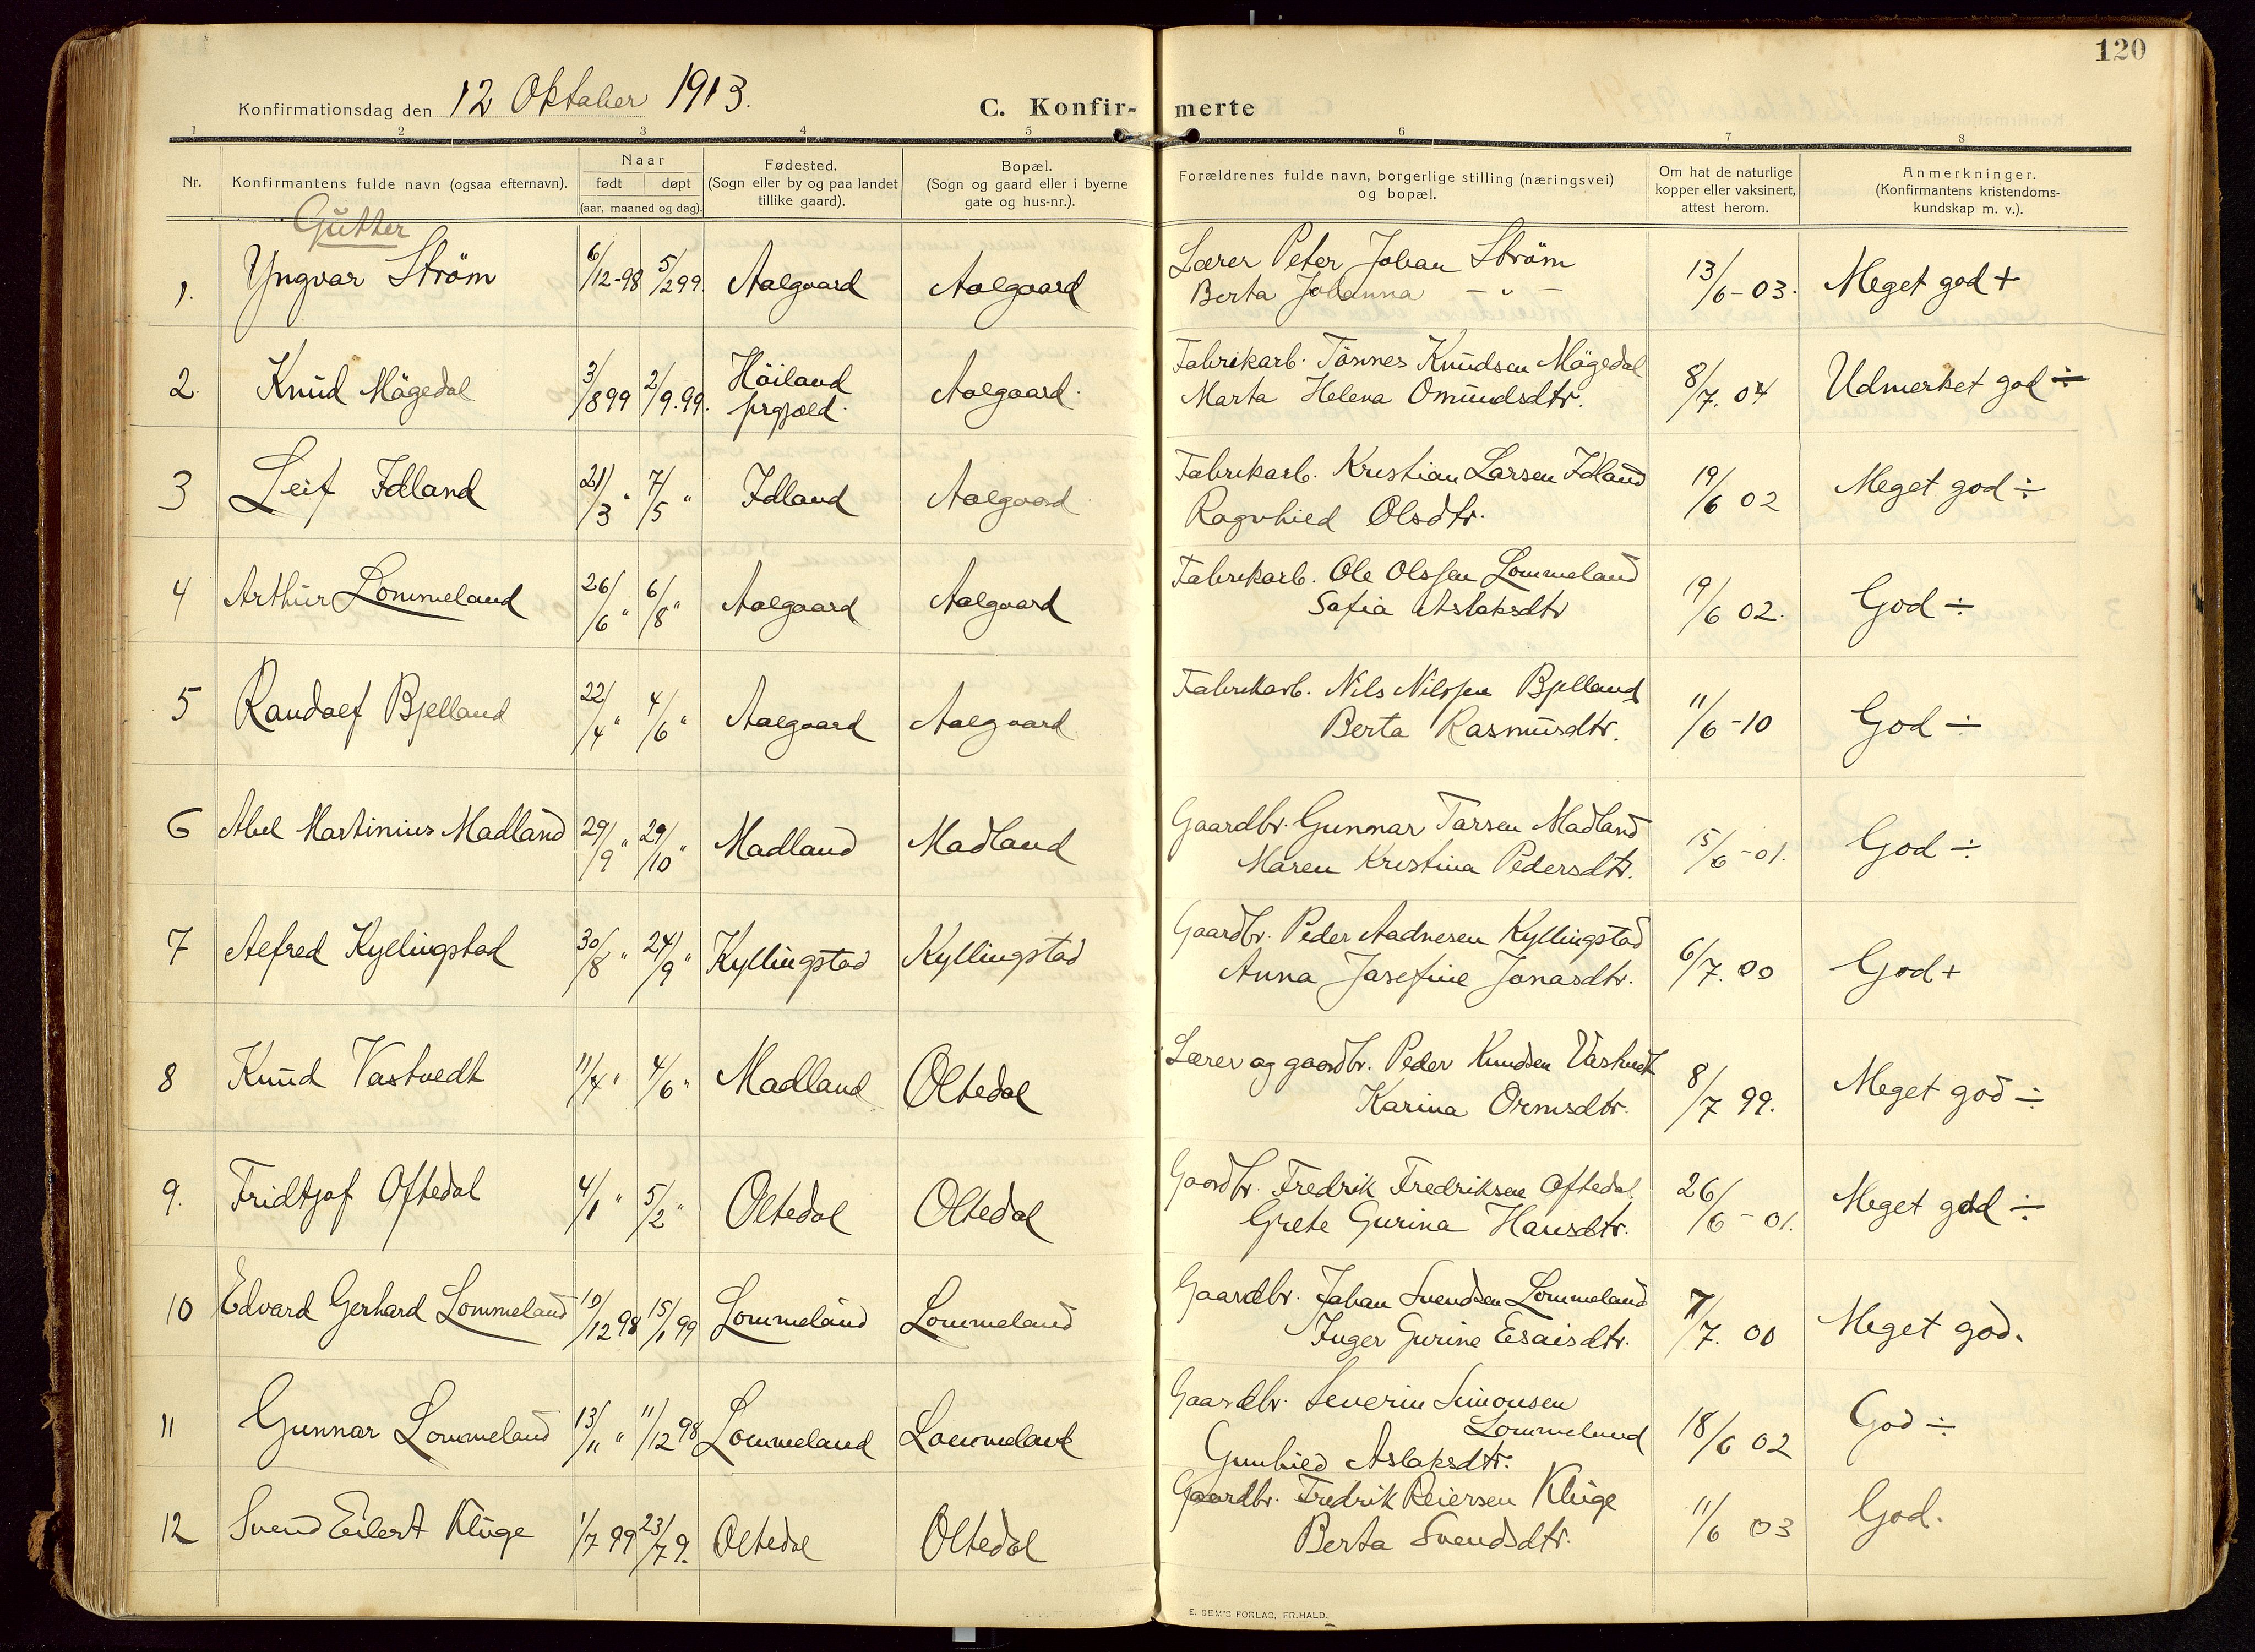 120
Konfirmationsdag den 12 Oktober 1913.
C. Konfir- merte
1 2 3 4 5 6 7 8
Nr.
Konfirmantens fulde navn (ogsaa efternavn).
Naar
født døpt
(aar, maaned og dag).
Fødested.
(Sogn eller by og paa landet
tillike gaard).
Bopæl.
(Sogn og gaard eller i byerne
gate og hus-nr.).
Forældrenes fulde navn, borgerlige stilling (næringsvei)
og bopæl.
Om hat de naturlige
kopper eller vaksinert,
attest herom.
Anmerkninger.
(Konfirmantens kristendoms-
kundskap m. v.).
Gutter
1. Yngvar Ström 6/12-98 5/2 99. Aalgaard Aalgaard Lærer Peter Johan Ström 13/6-03. Meget god +
Berta Johanna - " -
2. Knud Mögedal 3/8 99 2/9.99. Höiland Aalgaard. Fabrikarb. Tönnes Knudsen Mögedal 8/7. 04 Udmerket god ÷
prgjæld. Marta Helena Omundsdtr.
3 Leif Idland 21/3 " 7/5 " Idland Aalgaard Fabrikarb. Kristian Larsen Idland 19/6 02 Meget god ÷
Ragnhild Olsdtr.
4 Arthur Lommeland 26/6 " 6/8 " Aalgaard Aalgaard Fabrikarb. Ole Olssen Lommeland 19/6 02. God ÷
Sofia Aslaksdtr
5 Randolf Bjelland 22/4 " 4/6 " Aalgaard Aalgaard Fabrikarb. Nils Nilssen Bjelland 11/6-10 God ÷
Berta Rasmusdtr.
6 Abel Martinius Madland 29/9 " 29/10 " Madland Madland Gaardbr. Gunnar Tarsen Madland 15/6-01. God ÷
Maren Kristina Pedersdtr.
7 Alfred Kyllingstad 30/8 " 24/9 " Kyllingstad Kyllingstad Gaardbr. Peder Aadnesen Kyllingstad 6/7. 00 God +
Anna Josefine Jonasdtr.
8 Knud Vastvedt 11/4 " 4/6 " Madland Oltedal Lærer og gaardbr. Peder Knudsen Vastvedt 8/7 99. Meget god ÷
Karina Ormsdtr.
9. Fridtjof Oftedal 4/1 " 5/2 " Oltedal Oltedal Gaardbr. Fredrik Fredriksen Oftedal 26/6-01. Meget god ÷
Grete Gurina Hansdtr.
10 Edvard Gerhard Lommeland 10/12 98 15/1 99 Lommeland Lommeland Gaardbr. Johan Svendsen Lommeland 7/7. 00 Meget god.
Inger Gurine Esaisdtr.
11 Gunnar Lommeland 13/11 " 11/12 98 Lommeland Lommeland Gaardbr. Severin Simonsen
Lommeland 18/6 02 God ÷
Gunhild Aslaksdtr.
12 Svend Eilert Kluge 1/7 99 23/7 9. Oltedal Oltedal Gaardbr. Fredrik Reiersen Kluge 11/6 03 God.
Berta Svendsdtr.
E. SEM'S FORLAG, FR.HALD.